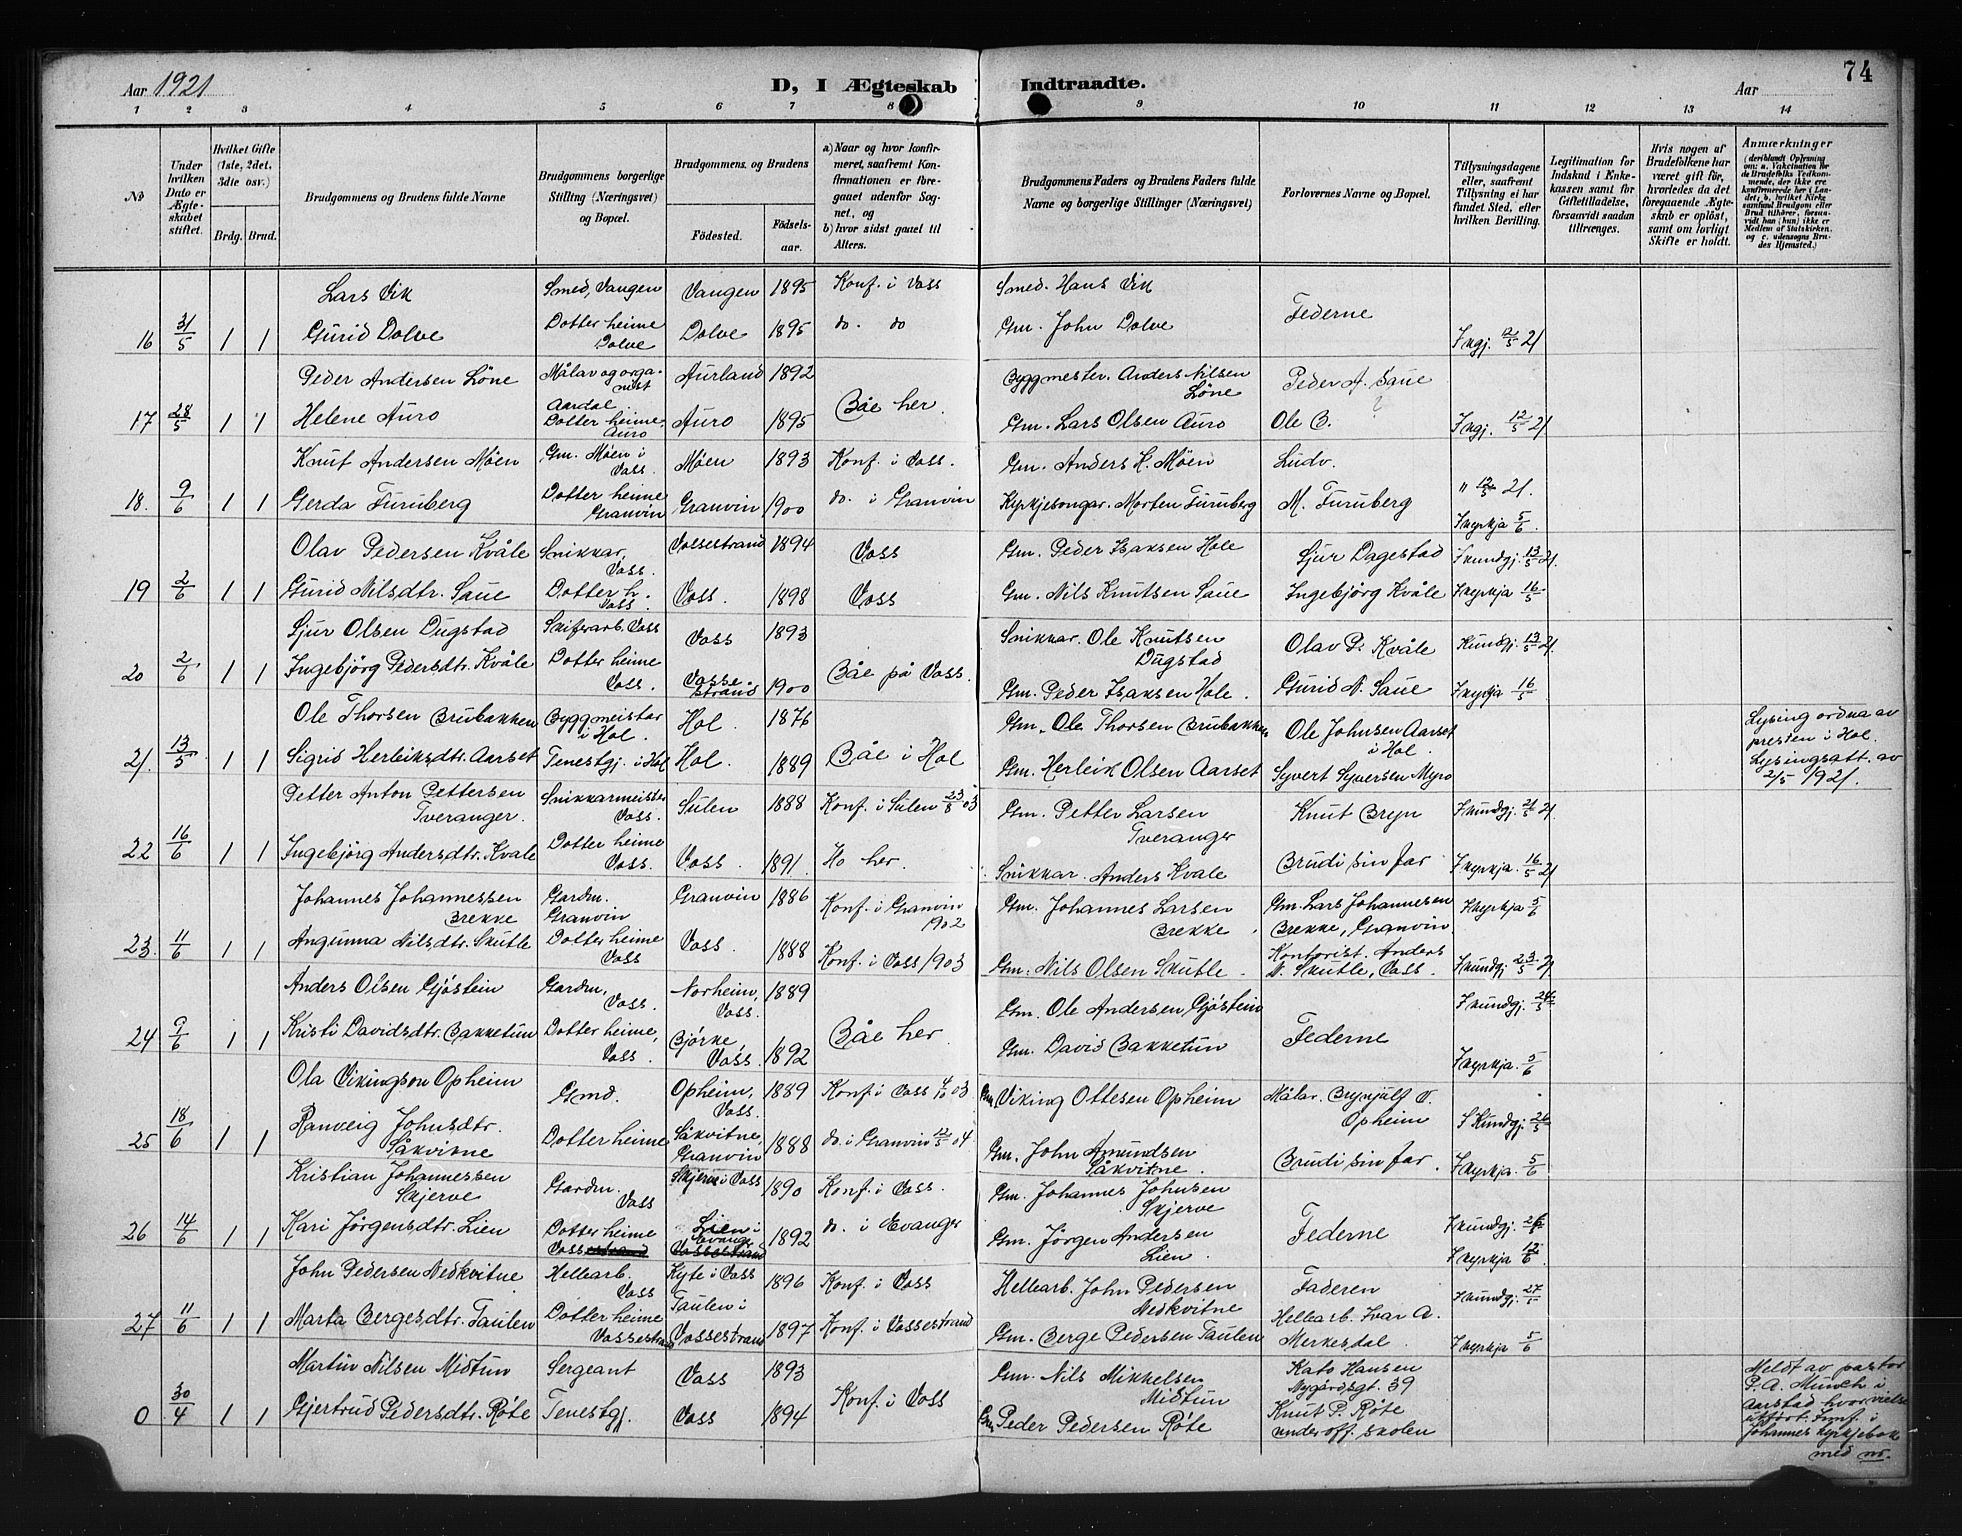 Aar 1921 D, I Ægteskab Indtraadte. Aar 74
1 2 3 4 5 6 7 8 9 10 11 12 13 14
No
Under hvilken Dato er Ægteskabet stiftet.
Hvilket Gifte (1ste, 2det, 3die osv.)
Brdg. Brud.
Brudgommens og Brudens fulde Navne
Brudgommens borgerlige Stilling (Næringsvei) og Bopæl.
Brudgommens og Brudens
Fødested. Fødselsaar.
a) Naar og hvor konfirmeret, saafremt Konfirmationen er foregaaet udenfor Sognet, og
b) hvor sidst gaaet til Alters.
Brudgommens Faders og Brudens Faders fulde Navne og borgerlige Stillinger (Næringsvei)
Forlovernes Navne og Bopæl.
Tillysningsdagene eller, saafremt Tillysning ei har fundet Sted, efter hvilken Bevilling.
Legitimation for Indskud i Enkekassen samt for Giftetilladelse, forsaavidt saadan tiltrænges.
Hvis nogen af Brudefolkene har været gift før, hvorledes da det foregaaende Ægteskab er opløst, samt om lovligt Skifte er holdt.
Anmærkninger
(deriblandt Oplysning om: a. Vakcination for de Brudefolks Vedkommende, der ikke ere konfirmerede her i Landet; b. hvilket Kirkesamfund Brudgom eller Brud tilhører, forsaavidt han (hun) ikke er Medlem af Statskirken, og c. udensogns Brudes Hjemsted.)
Lars Vik Smed, Vangen Vangen 1895 Konf. i Voss Smed. Hans Vik Federne
16 31/5 1 1 Gurid Dolve Dotter heime Dolve Dolve 1895 do. do Gm. John Dolve Ikgj. 12/5 21
Peder Andersen Løne Målar og organist Aardal Aurland 1892 Båe her. Byggmester. Anders Nilsen Løne Peder A. Saue
17 28/5 1 1 Helene Auro Dotter heime, Auro Auro 1895 Gm. Lars Olsen Auro Ole B. Ikgj. 12/5 21
Knut Andersen Møen Gm. Møen i Voss. Møen 1893 Konf. i Voss. Gm. Anders K. Møen Ludv.
18. 9/6 1 1 Gerda Furuberg Dotter heime Granvin Granvin 1900 do. i Granvin Kyrkjesongar. Morten Furuberg M. Furuberg " 12/5 21. I kyrkja 5/6
Olav Pedersen Kvåle Snikkar, Voss. Vossestrand 1894 Voss Gm. Peder Isaksen Hole Sjur Dagestad I kundgj. 13/5 21.
19 2/6 1 1 Gurid Nilsdtr. Saue Dotter h. Voss. Voss. 1898 Voss Gm. Nils Knutsen Saue Ingebjörg Kvåle I kyrkja 16/5
Sjur Olsen Dugstad Skiferarb. Voss Voss 1893 Båe på Voss. Snikkar. Ole Knutsen Dugstad Olav P. Kvåle Kundgj. 13/5 21.
20 2/6 1 1 Ingebjörg Pedersdtr. Kvåle Dotter heime Voss. Vossestrand 1900 Gm. Peder Isaksen Hole. Gurid N. Saue I kyrkja 16/5
Ole Thorsen Brubakken Byggmeistar i Hol. Hol. 1876 Båe i Hol Gm. Ole Thorsen Brubakken Ole Johnsen Aarset i Hol. Lysing ordna av presten i Hol. Lysingsatt. av 2/5 1921.
21. 13/5 1 1 Sigrid Herleiksdtr. Aarset Tenestgj. i Hol Hol. 1889 Gm. Herleik Olsen Aarset Syvert Syversen Myro
Petter Anton Pettersen Tveranger. Snikkarmeister Voss. Sulen 1888 Konf. i Sulen 23/8 03 Gm. Petter Larsen Tveranger Knut Bryn I kundgj. 21/5 21.
22 16/6 1 1 Ingebjörg Andersdtr. Kvale Dotter heime Voss. Voss. 1891. Ho her. Snikkar. Anders Kvale Brudi sin far I kyrkja 16/5 21
Johannes Johannessen Brekke Gardm. Granvin Granvin 1886 Konf. i Granvin 1902 Gm. Johannes Larsen Brekke. Gm. Lars Johannesen Brekke, Granvin I kyrkja 5/6
23. 11/6 1 1 Angunna Nilsdtr. Skutle Dotter heime Voss Voss. 1888 Konf. i Voss 1903 Gm. Nils Olsen Skutle. Kontorist. Anders N. Skutle, Voss. I kundgj 23/5 21
Anders Olsen Gjøstein Gardm, Voss. Norheim, Voss. 1889 Båe her Gm. Ole Andersen Gjøstein Federne I kundgj. 24/5
24 9/6 1 1 Kristi Davidsdtr. Bakketun Dotter heime, Voss. Bjørke, Voss. 1892 Gm. David Bakketun I kyrkja. 5/6
Ola Vikingson Opheim Gmd. Opheim, Voss. 1889 Konf. i Voss 03 Gm. Viking Ottesen Opheim Målar. Brynjulf O. Opheim I Kundgj. 26/5
25 18/6 1 1 Ranveig Johnsdtr. Såkvitne Dotter heime Såkvitne, Granvin 1888 do. i Granvin 12/5 04 Gm. John Amundsen Såkvitne. Brudi sin far. I kyrkja. 5/6
Kristian Johannessen Skjerve Gardm. Voss Skjerve i Voss 1890 Konf. i Voss. Gm. Johannes Johnsen Skjerve Federne
26 14/6 1 1 Kari Jørgensdtr. Lien Dotter heime Vossestrand Lien i Evanger Vossestrand 1892 do. i Evanger Gm. Jørgen Andersen Lien. I kundgj. 26/5 I kyrkja 12/6
John Pedersen Nedkvitne Hellearb. Voss Kyte i Voss 1896 Konf. i Voss Hellearb. John Pedersen Nedkvitne Faderen I kundgj. 27/5
27 11/6 1 1 Marta Bergesdtr. Taulen Dotter heime Vossestrand Taulen i Vossestrand 1897 Konf. i Vossestrand Gm. Berge Pedersen Taulen Hellearb. Ivar A. Merkesdal I kyrkja 5/6
Martin Nilsen Midtun Sergeant Voss 1893 Konf. i Voss Gm. Nils Mikkelsen Midtun Kato Hansen Nygårdsgt. 39 Meldt av pastor P. A. Munch i Aarstad hvor vielse utført. Innf. i Johannes kyrkjebok med nr.
0 30/4 1 1 Gjertrud Pedersdtr. Røte Tenestgj. Voss 1894 Gm Peder Pedersen Røte Knut P. Røte underoff. skolen